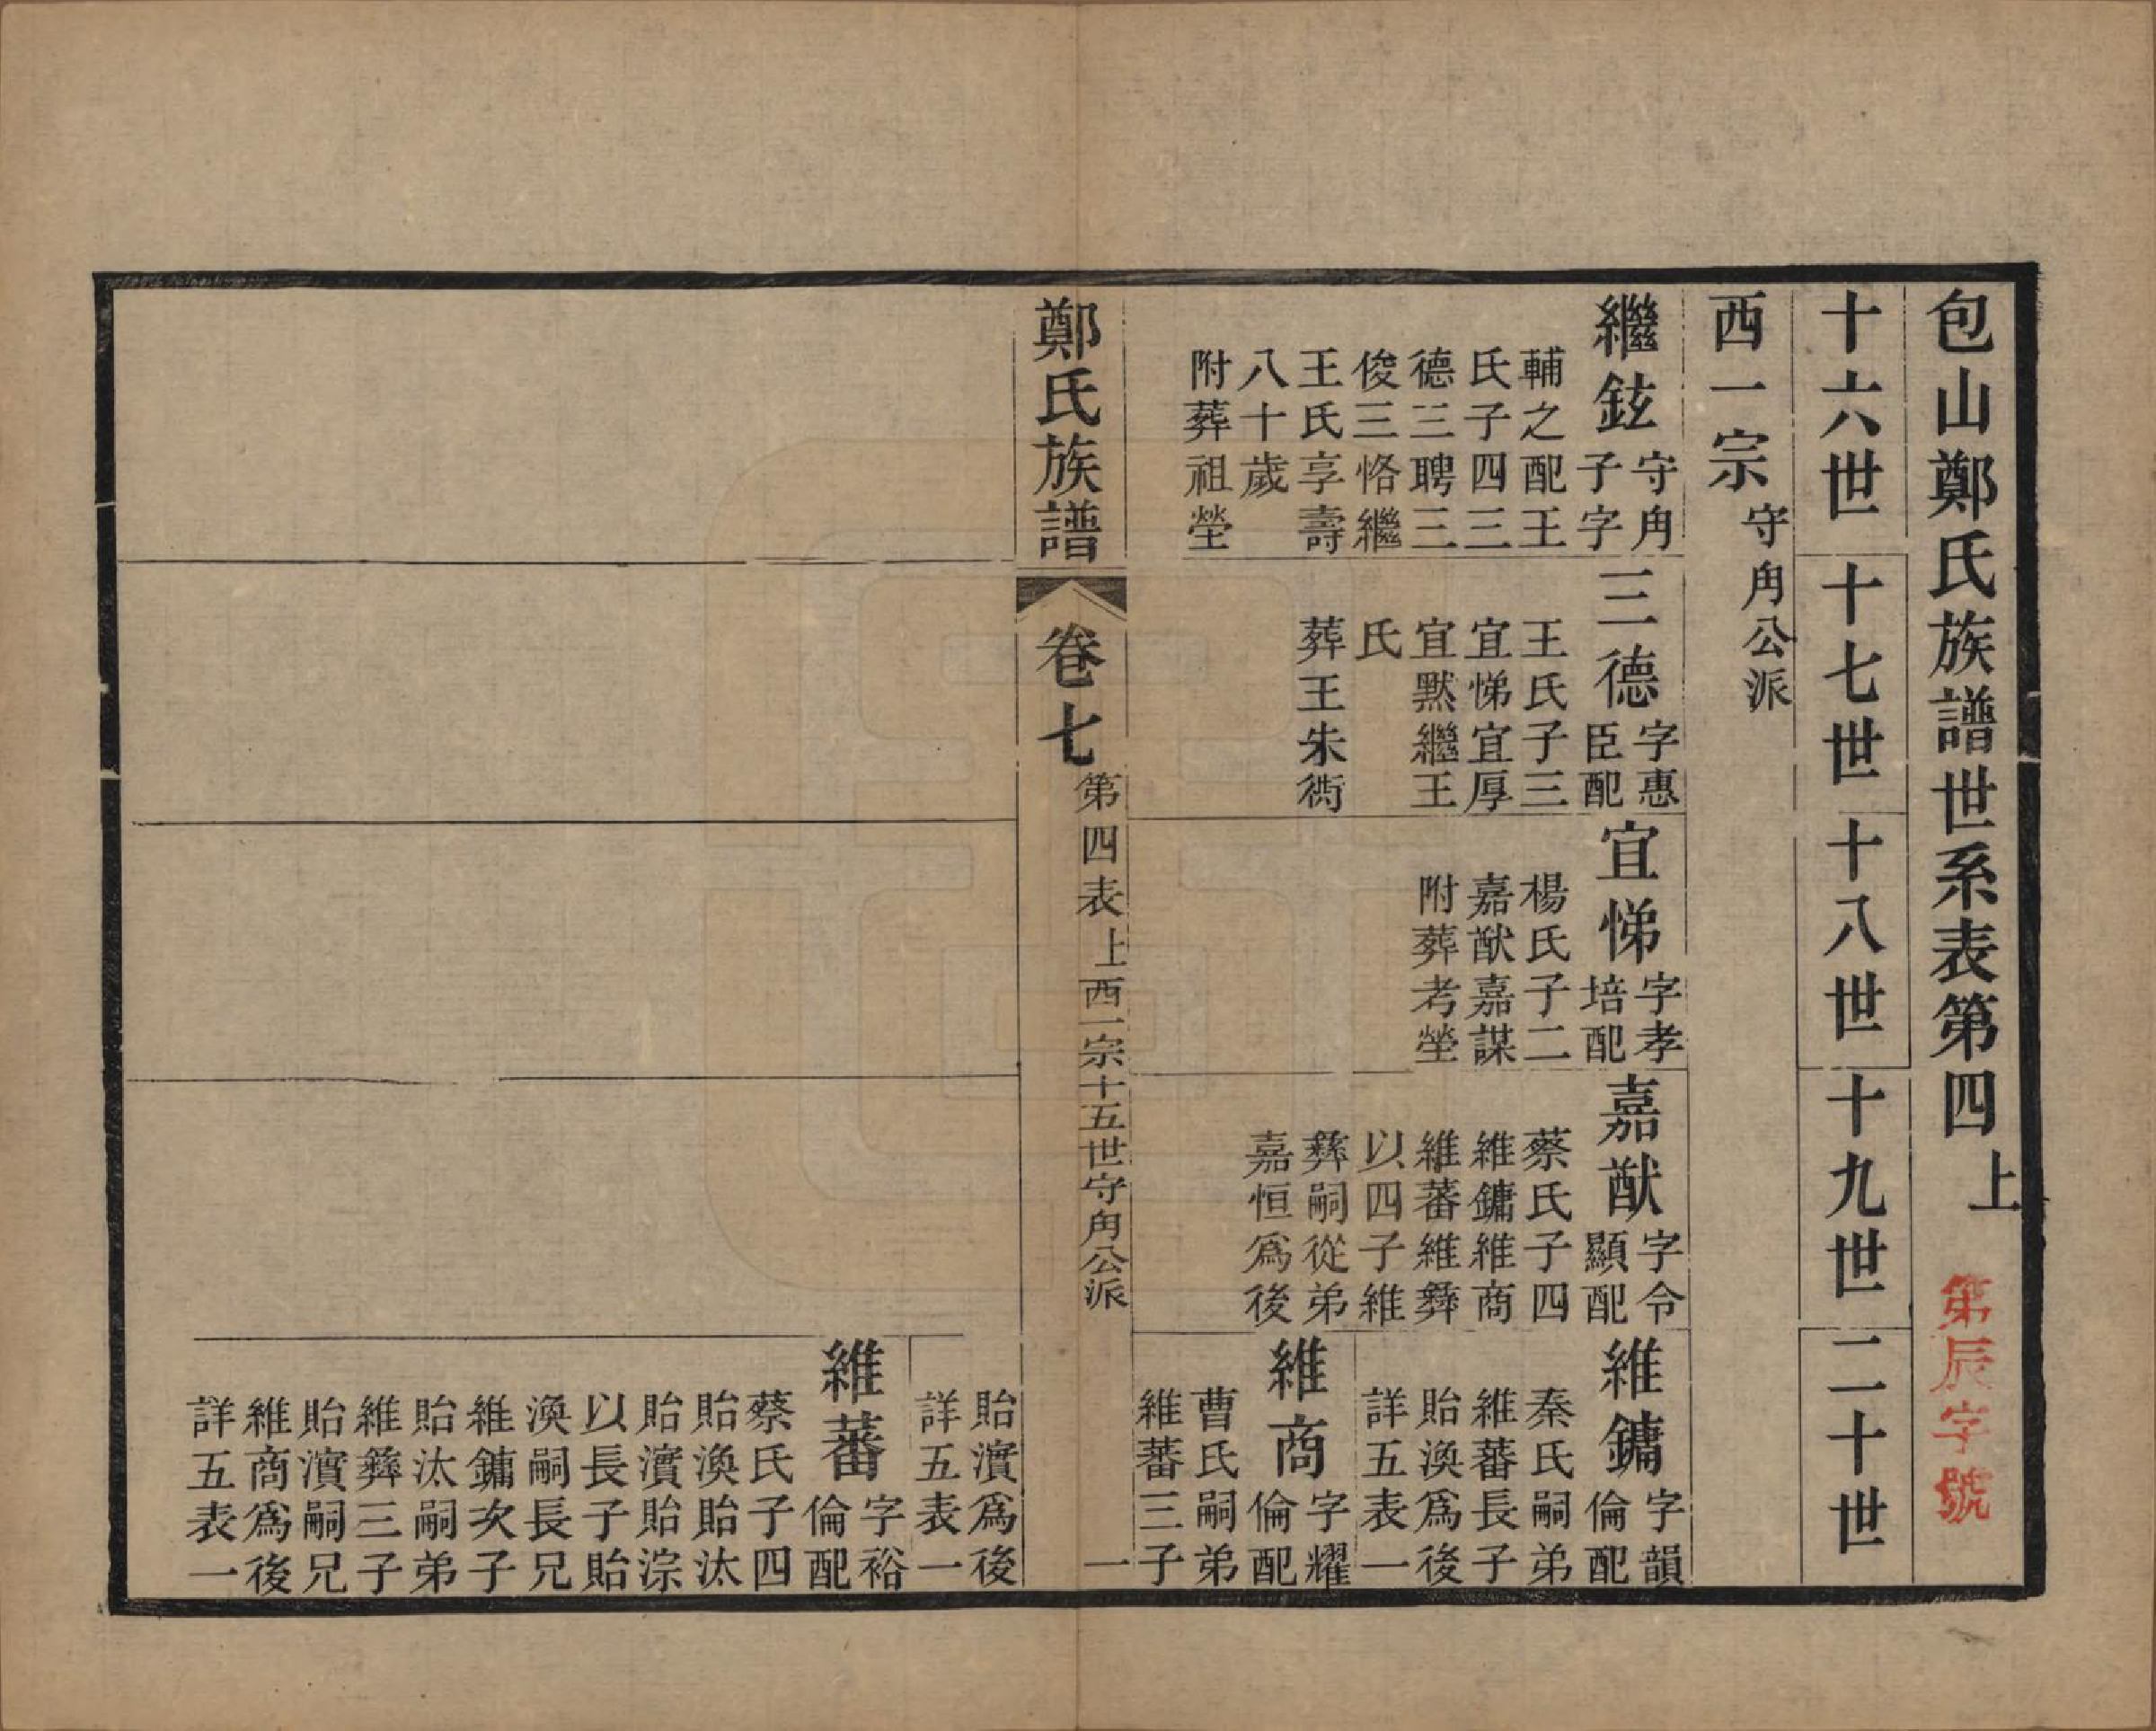 包山鄭氏族譜世系表第四上
第辰字號
十六世
十七世
十八世
十九世
二十世
西一宗 守角公派
繼鉉 守角
子字
輔之配王
氏子四三
德三聘三
俊三恪繼
王氏享壽
八十歲
附葬祖塋
三德 字惠
臣配
王氏子三
宜悌宜厚
宜默繼王
氏
葬王朱衖
宜悌 字孝
培配
楊氏子二
嘉猷嘉謀
附葬考塋
嘉猷 字令
顯配
蔡氏子四
維鏞維商
維蕃維彝
以四子維
彝嗣從弟
嘉恒爲後
維鏞 字韻
倫配
秦氏嗣弟
維蕃長子
貽渙爲後
詳五表一
維商 字耀
倫配
曹氏嗣弟
維蕃三子
鄭氏族譜
卷七
第四表上西一宗十五世守角公派
一
貽濱爲後
詳五表一
維蕃 字裕
倫配
蔡氏子四
貽渙貽汰
貽濱貽淙
以長子貽
渙嗣長兄
維鏞次子
貽汰嗣弟
維彝三子
貽濱嗣兄
維商爲後
詳五表一